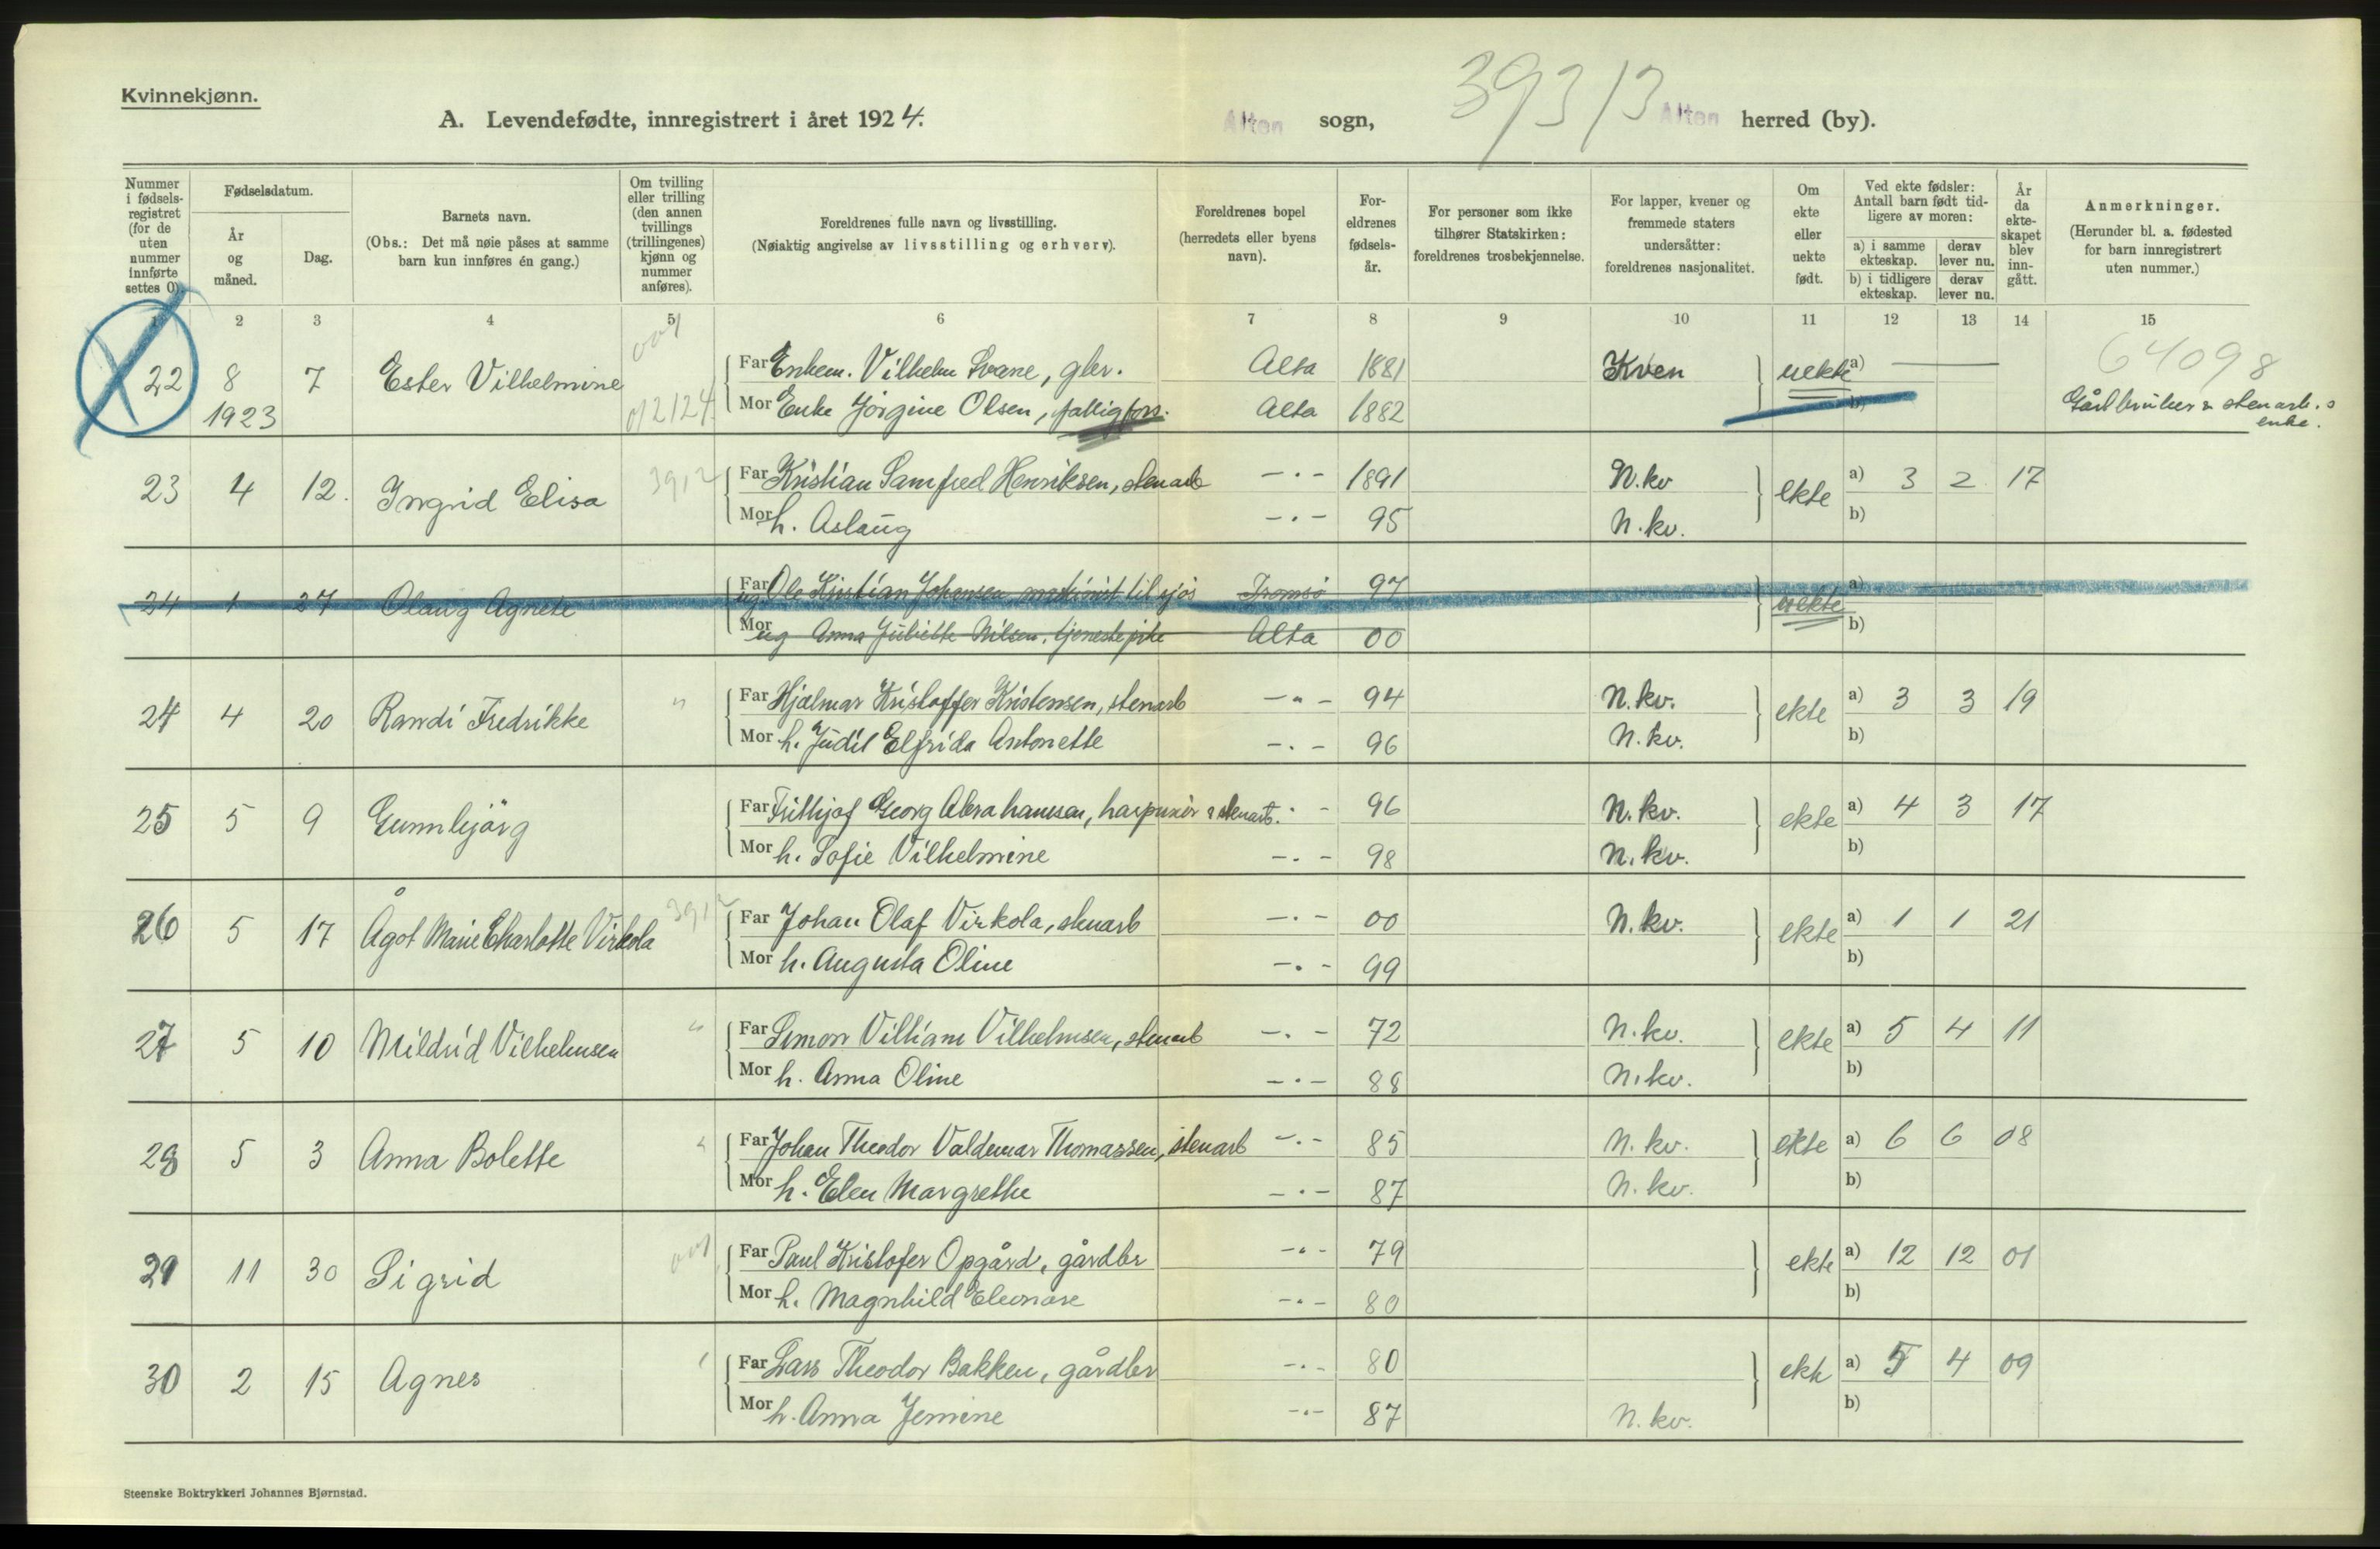 Kvinnekjønn.
A. Levendefødte, innregistrert i året 1924. Alten sogn, 39313 Alten herred (by).
Nummer i fødselsregistret (for de uten nummer innførte settes 0).
Fødselsdatum.
År og måned.
Dag.
Barnets navn.
(Obs.: Det må nøie påses at samme barn kun innføres én gang.)
Om tvilling eller trilling (den annen tvillings (trillingenes) kjønn og nummer anføres).
Foreldrenes fulle navn og livsstilling.
(Nøiaktig angivelse av livsstilling og erhverv).
Foreldrenes bopel (herredets eller byens navn).
Foreldrenes fødselsår.
For personer som ikke tilhører Statskirken: foreldrenes trosbekjennelse.
For lapper, kvener og fremmede staters undersåtter: foreldrenes nasjonalitet.
Om ekte eller uekte født.
Ved ekte fødsler: Antall barn født tidligere av moren:
a) i samme ekteskap. derav lever nu.
b) i tidligere ekteskap. derav lever nu.
År da ekteskapet blev inngått.
Anmerkninger.
(Herunder bl. a. fødested for barn innregistrert uten nummer.)
1 2 3 4 5 6 7 8 9 10 11 12 13 14 15
22 8 7 Ester Vilhelmine Far Enkem. Vilhelm Svane, gbr. Alta 1881 Kven uekte a) 64098
1923 02124 Mor Enke Jörgine Olsen, fattigfors. Alta 1882 b) Gårdbruker & stenarb.s enke.
23 4 12. Ingrid Elisa 3912 Far Kristian Samfred Henriksen, stenarb -"- 1891 N.kv ekte a) 3 2 17
Mor h. Aslaug -"- 95 N.kv. b)
24 1 27 Olaug Agnete Far ug. Ole Kristian Johansen maskinist til sjøs Tromsö 97 uekte a)
Mor ug Anna Juliette Nilsen, tjenestepike Alta 00 b)
24 4 20 Randi Fredrikke " Far Hjalmar Kristoffer Kristensen, stenarb -"- 94 N.kv. ekte a) 3 3 19
Mor h. Judit Elfrida Antonette -"- 96 N.kv. b)
25 5 9 Gunnbjörg Far Frithjof Georg Abrahamsen, harpunér & stenarb. -"- 96 N.kv. ekte a) 4 3 17
Mor h. Sofie Vilhelmine -"- 98 N.kv. b)
26 5 17 Ågot Marie Charlotte Virkola 3912 Far Johan Olaf Virkola, stenarb -"- 00 N.kv. ekte a) 1 1 21
Mor h. Augusta Oline -"- 99 b)
27 5 10 Mildrid Vilhelmsen " Far Simon Villiam Vilhelmsen, stenarb -"- 72 N.kv. ekte a) 5 4 11
Mor h. Anna Oline -"- 88 N.kv. b)
28 5 3 Anna Bolette " Far Johan Theodor Valdemar Thomassen, stenarb -"- 85 N.kv. ekte a) 6 6 08
Mor h. Elen Margrethe -"- 87 N.kv. b)
29 11 30 Sigrid Far Paul Kristofer Opgård, gårdbr -"- 79 ekte a) 12 12 01
Mor h. Magnhild Eleonore -"- 80 b)
30 2 15 Agnes Far Lars Theodor Bakken, gårdbr -"- 80 ekte a) 5 4 09
Mor h. Anna Jemine -"- 87 N.kv. b)
Steenske Boktrykkeri Johannes Bjørnstad.